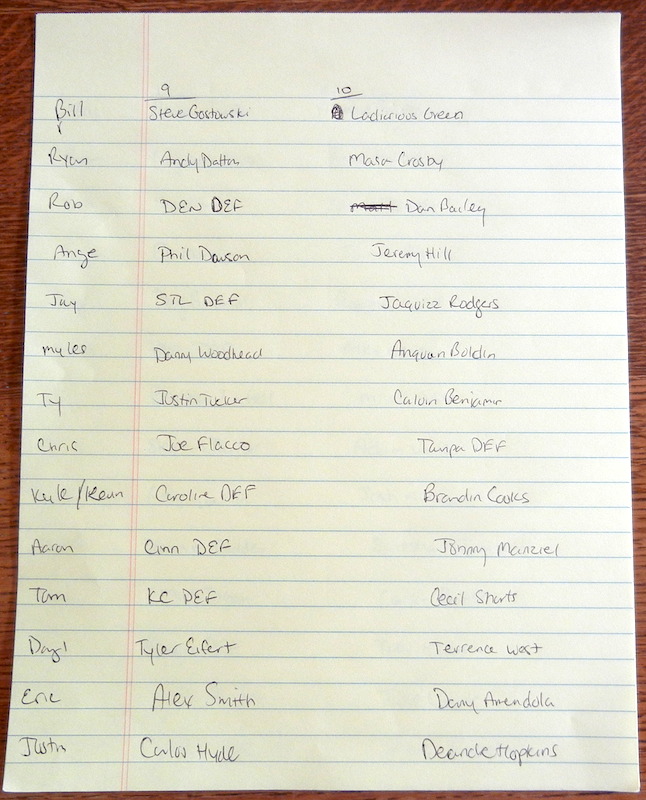 9 10
Bill Steve Gostowski Ladicrious Green
Ryan Andy Dalton Mason Crosby
Rob DEN DEF Dan Bailey
Ange Phil Dawson Jeremy Hill
Jay STL DEF Jaquizz Rodgers
myles Danny Woodhead Anquan Boldin
Ty Justin Tucker Calvin Benjamin
Chris Joe Flacco Tampa DEF
Kyle/Kevin Caroline DEF Brandin Cooks
Aaron Cinn DEF Johnny Manziel
Tom KC DEF Cecil Shorts
Tyler Eifert Terrence West
Eric Alex Smith Dany Amendola
Justin Carlos Hyde Deandre Hopkins